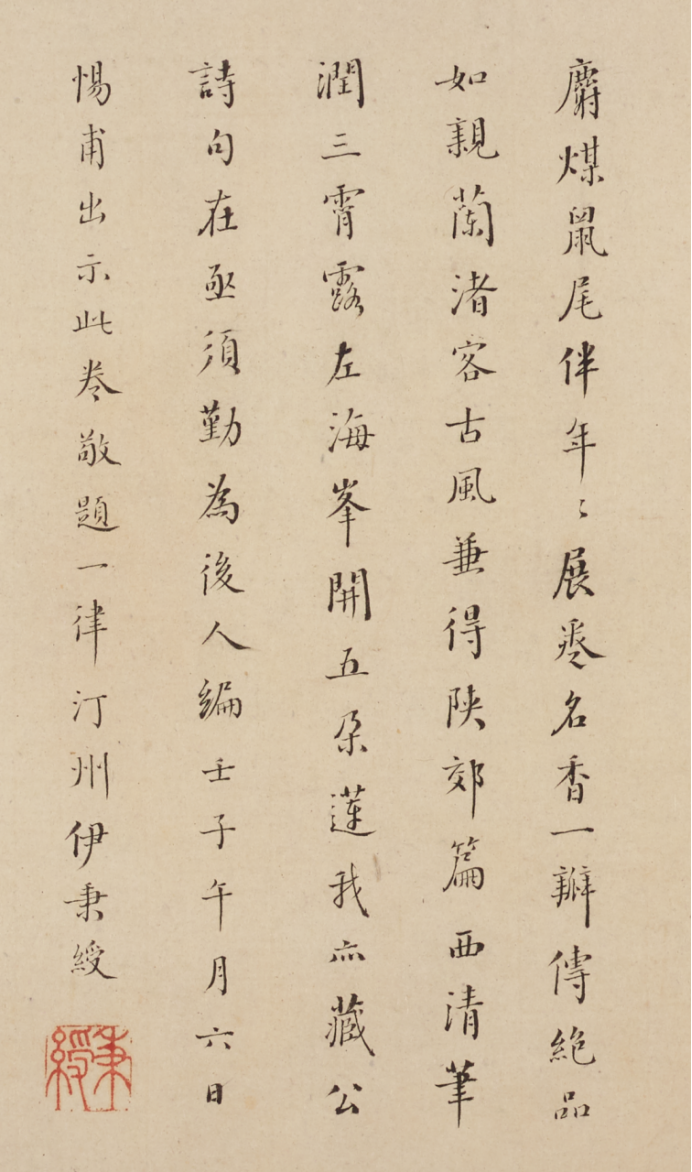 麝煤鼠尾伴年〻展卷名香一瓣傳絶品
如親蘭渚客古風兼得陝郊篇西清筆
潤三霄露左海峯開五朵蓮我亦藏公
詩句在亟須勤為後人編壬子午月六日
惕甫出示此卷敬題一律汀州伊秉綬
秉綬